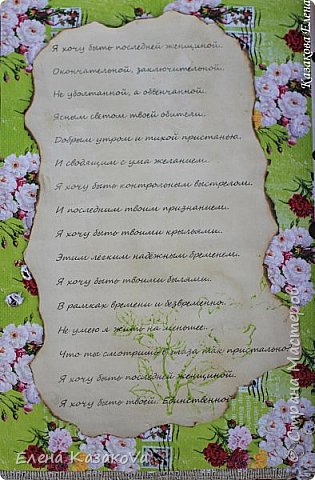 Я хочу быть последней женщиной.
Окончательной, заключительной.
Не уболтанной, а обвенчанной.
Ясным светом твоей обители.
Добрым утром и тихой пристанью.
И сводящим с ума желанием.
Я хочу быть контрольным выстрелом.
И последним твоим признанием.
Я хочу быть твоими крыльями.
Этим лёгким надёжным бременем.
Я хочу быть твоими былями.
В рамках времени и безвременно.
Не умею я жить на меньшее.
Что ты смотришь в глаза так пристально?
Я хочу быть последней женщиной.
Я хочу быть твоей. Единственной
Казакова Елена
© Страна Мастеров
Елена KazakoVa